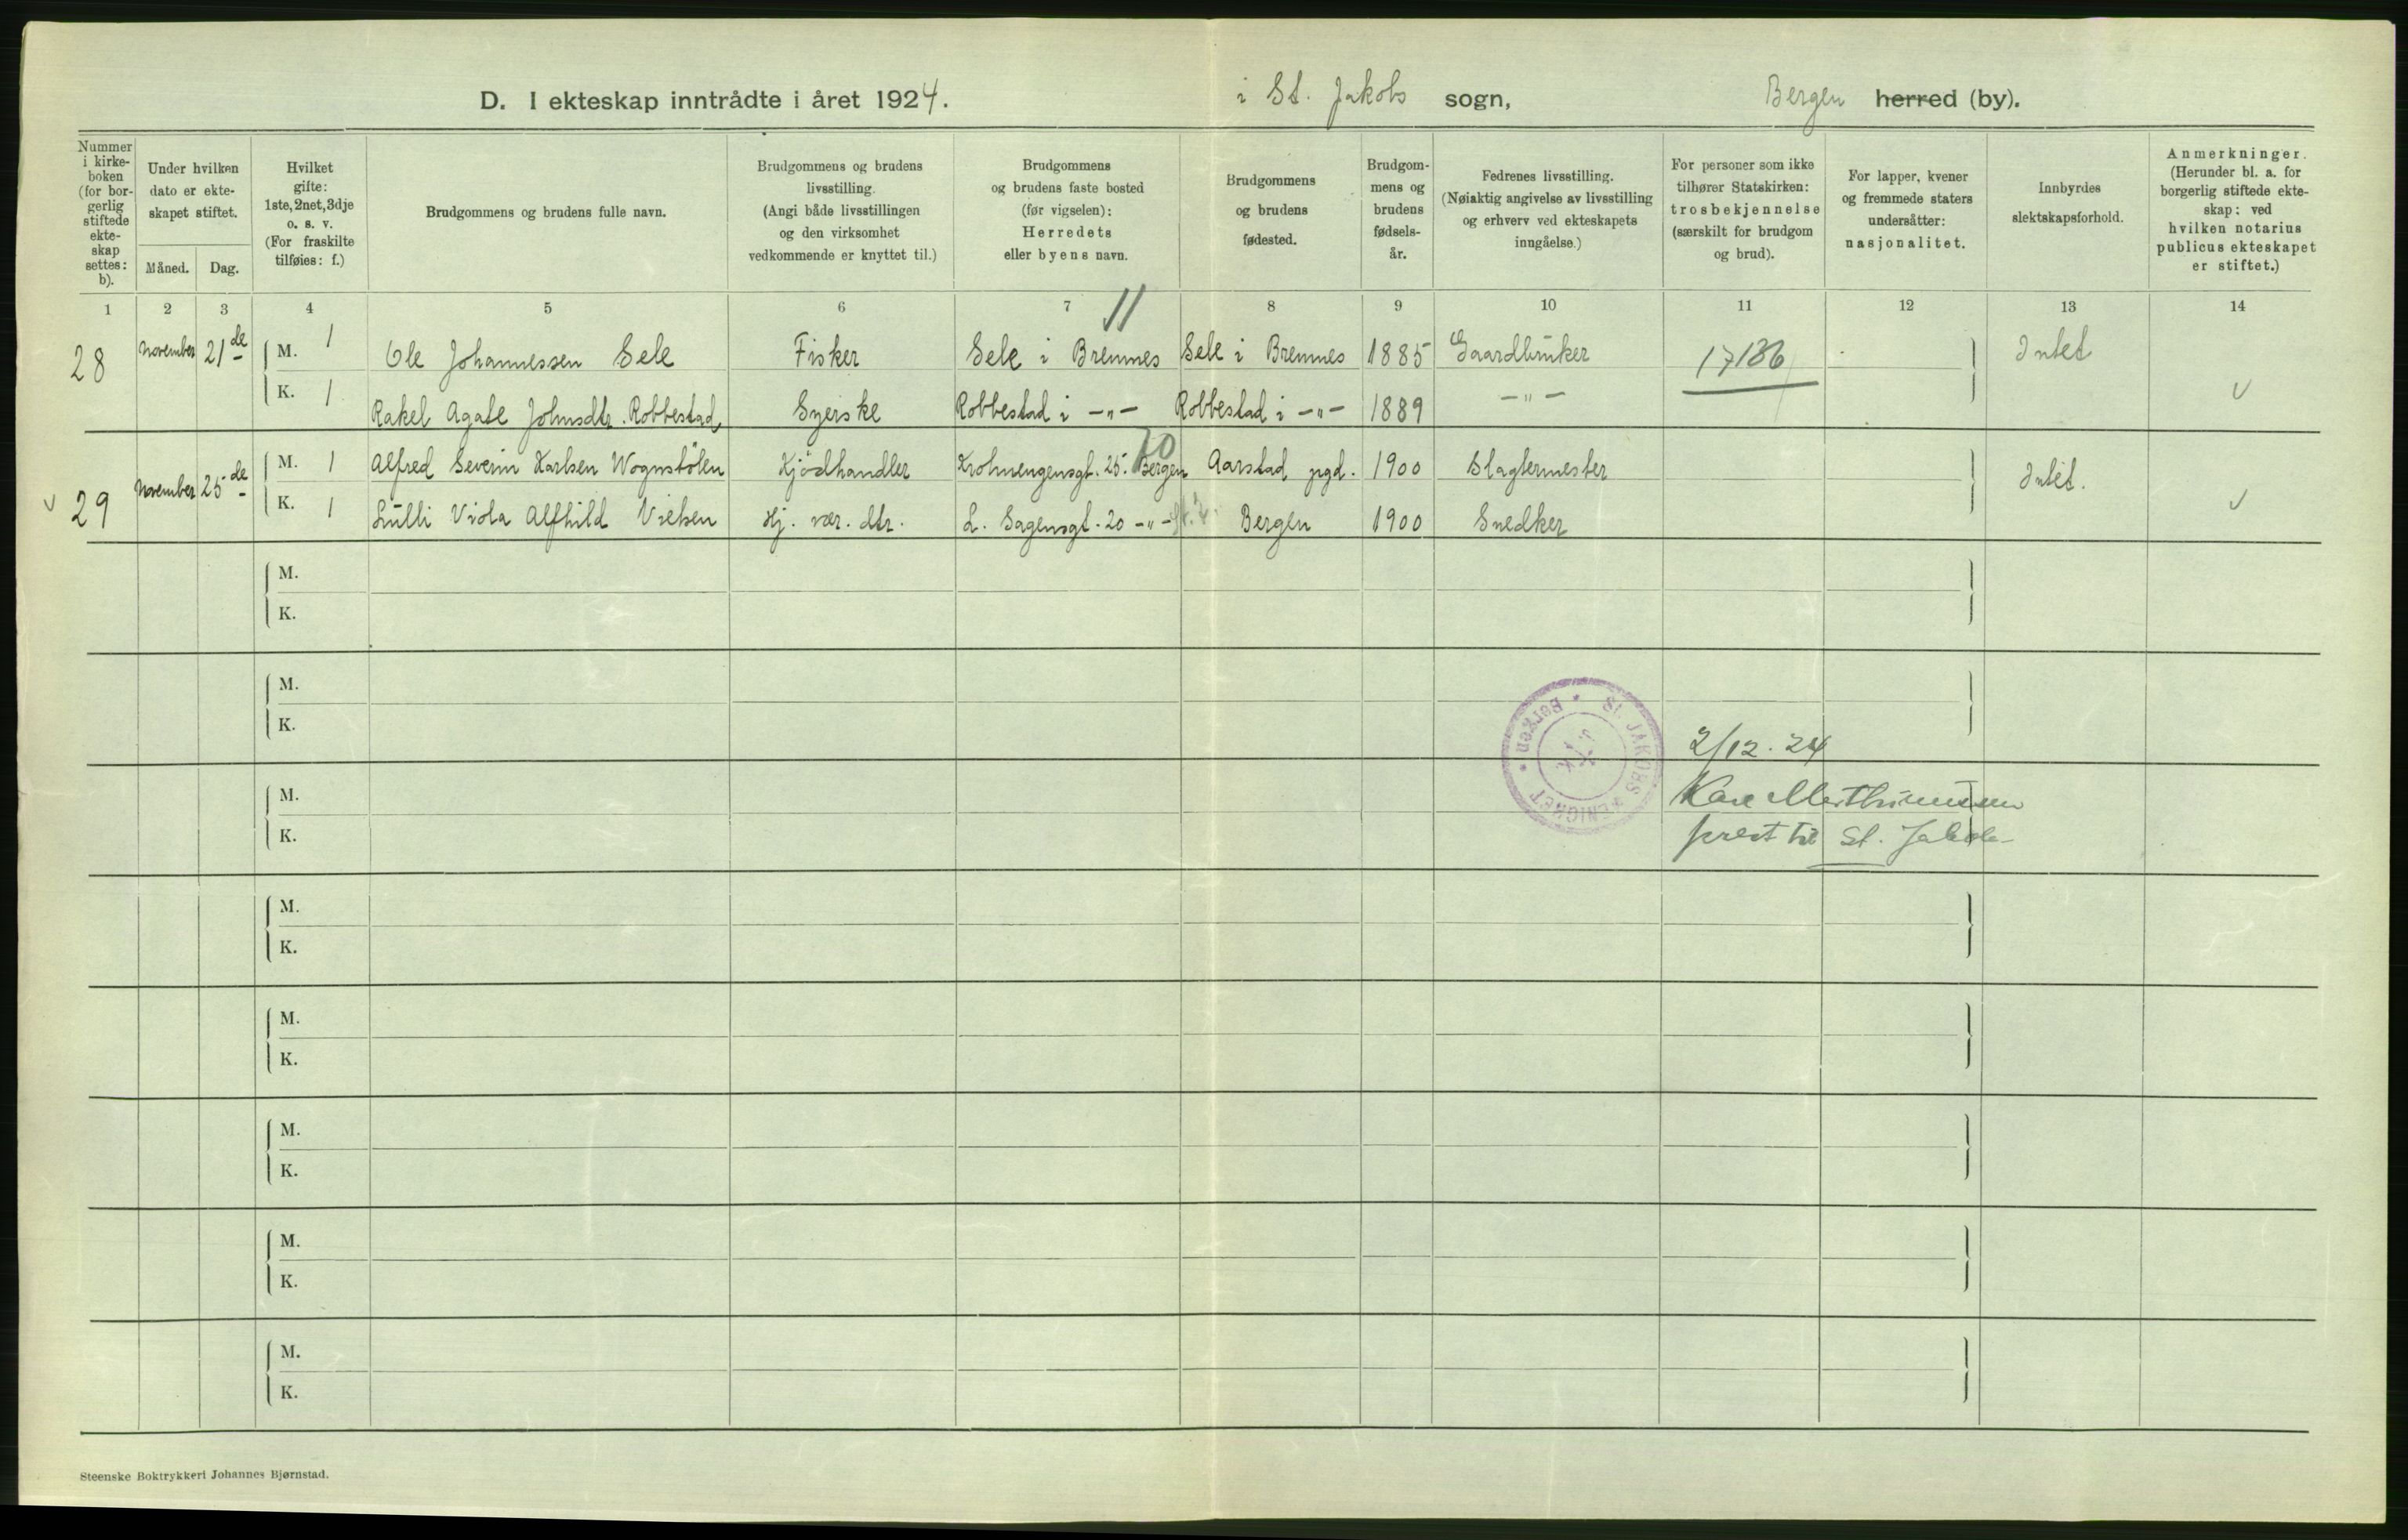 D. I ekteskap inntrådte i året 1924. i St. Jakobs sogn, Bergen herred (by).
Nummer i kirke-boken (for bor-gerlig stiftede ekte-skap settes: b).
Under hvilken dato er ekte-skapet stiftet.
Måned. Dag.
Hvilket gifte: 1ste, 2net, 3dje o. s. v. (For fraskilte tilføies: f.)
Brudgommens og brudens fulle navn.
Brudgommens og brudens livsstilling. (Angi både livsstillingen og den virksomhet vedkommende er knyttet til.)
Brudgommens og brudens faste bosted (før vigselen): Herredets eller byens navn.
Brudgommens og brudens fødested.
Brudgom-mens og brudens fødsels-år.
Fedrenes livsstilling. (Nøiaktig angivelse av livsstilling og erhverv ved ekteskapets inngåelse.)
For personer som ikke tilhører Statskirken: trosbekjennelse (særskilt for brudgom og brud).
For lapper, kvener og fremmede staters undersåtter: nasjonalitet.
Innbyrdes slektskapsforhold.
Anmerkninger. (Herunder bl. a. for borgerlig stiftede ekte-skap: ved hvilken notarius publicus ekteskapet er stiftet.)
1 2 3 4 5 6 7 8 9 10 11 12 13 14
11
28 November 21de M. 1 Ole Johannessen Sele Fisker Sele i Bremnes Sele i Bremnes 1885 Gaardbruker 17186 Intet
K. 1 Rakel Agate Johnsdtr. Robbestad Syerske Robbestad i -"- Robbestad i -"- 1889 -"-
29 November 25de M. 1 Alfred Severin Karlsen Wognstölen Kjödhandler Krohnengensgt. 25. Bergen Aarstad pgd. 1900 Slagtermester Intet.
K. 1 Lülli Viola Alfhild Nielsen Hj. vær. dtr. L. Sagensgt. 20 -"- Bergen 1900 Snedker
M.
K.
M.
K.
St. JAKOBS MENIGHET • Bergen •
2/12. 24
M.
K.
prest til St. Jakob
M.
K.
M.
K.
M.
K.
M.
K.
M.
K.
Steenske Boktrykkeri Johannes Bjørnstad.